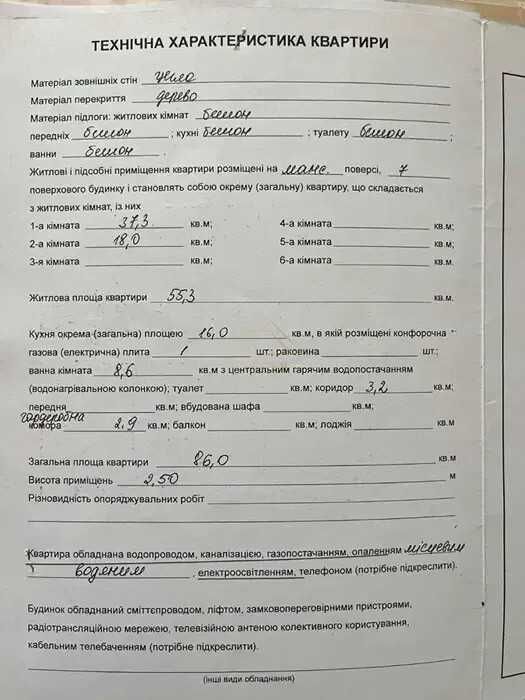 ТЕХНІЧНА ХАРАКТЕРИСТИКА КВАРТИРИ
Матеріал зовнішніх стін цегла
Матеріал перекриття дерево
Матеріал підлоги: житлових кімнат бетон
передніх бетон ; кухні бетон ; туалету бетон ;
ванни бетон .
Житлові і підсобні приміщення квартири розміщені на манс. поверсі, 7
поверхового будинку і становлять собою окрему (загальну) квартиру, що складається
з житлових кімнат, із них
1-а кімната 37,3 кв.м; 4-а кімната кв.м;
2-а кімната 18,0 кв.м; 5-а кімната кв.м;
3-я кімната кв.м; 6-а кімната кв.м.
Житлова площа квартири 55,3 кв.м.
Кухня окрема (загальна) площею 16,0 кв.м, в якій розміщені конфорочна
газова (електрична) плита 1 шт.; раковина шт.;
ванна кімната 8,6 кв.м з центральним гарячим водопостачанням
(водонагрівальною колонкою); туалет кв.м; коридор 3,2
передня кв.м; вбудована шафа кв.м;
гардеробна
комора 2,9 кв.м; балкон кв.м; лоджія кв.м
Загальна площа квартири 86,0 кв.м
Висота приміщень 2,50 м
Різновидність опоряджувальних робіт
Квартира обладнана водопроводом, каналізацією, газопостачанням, опаленням місцевим
водяним , електроосвітленням, телефоном (потрібне підкреслити).
Будинок обладнаний сміттєпроводом, ліфтом, замковопереговірними пристроями,
радіотрансляційною мережею, телевізійною антеною колективного користування,
кабельним телебаченням (потрібне підкреслити).
(інші види обладнання)